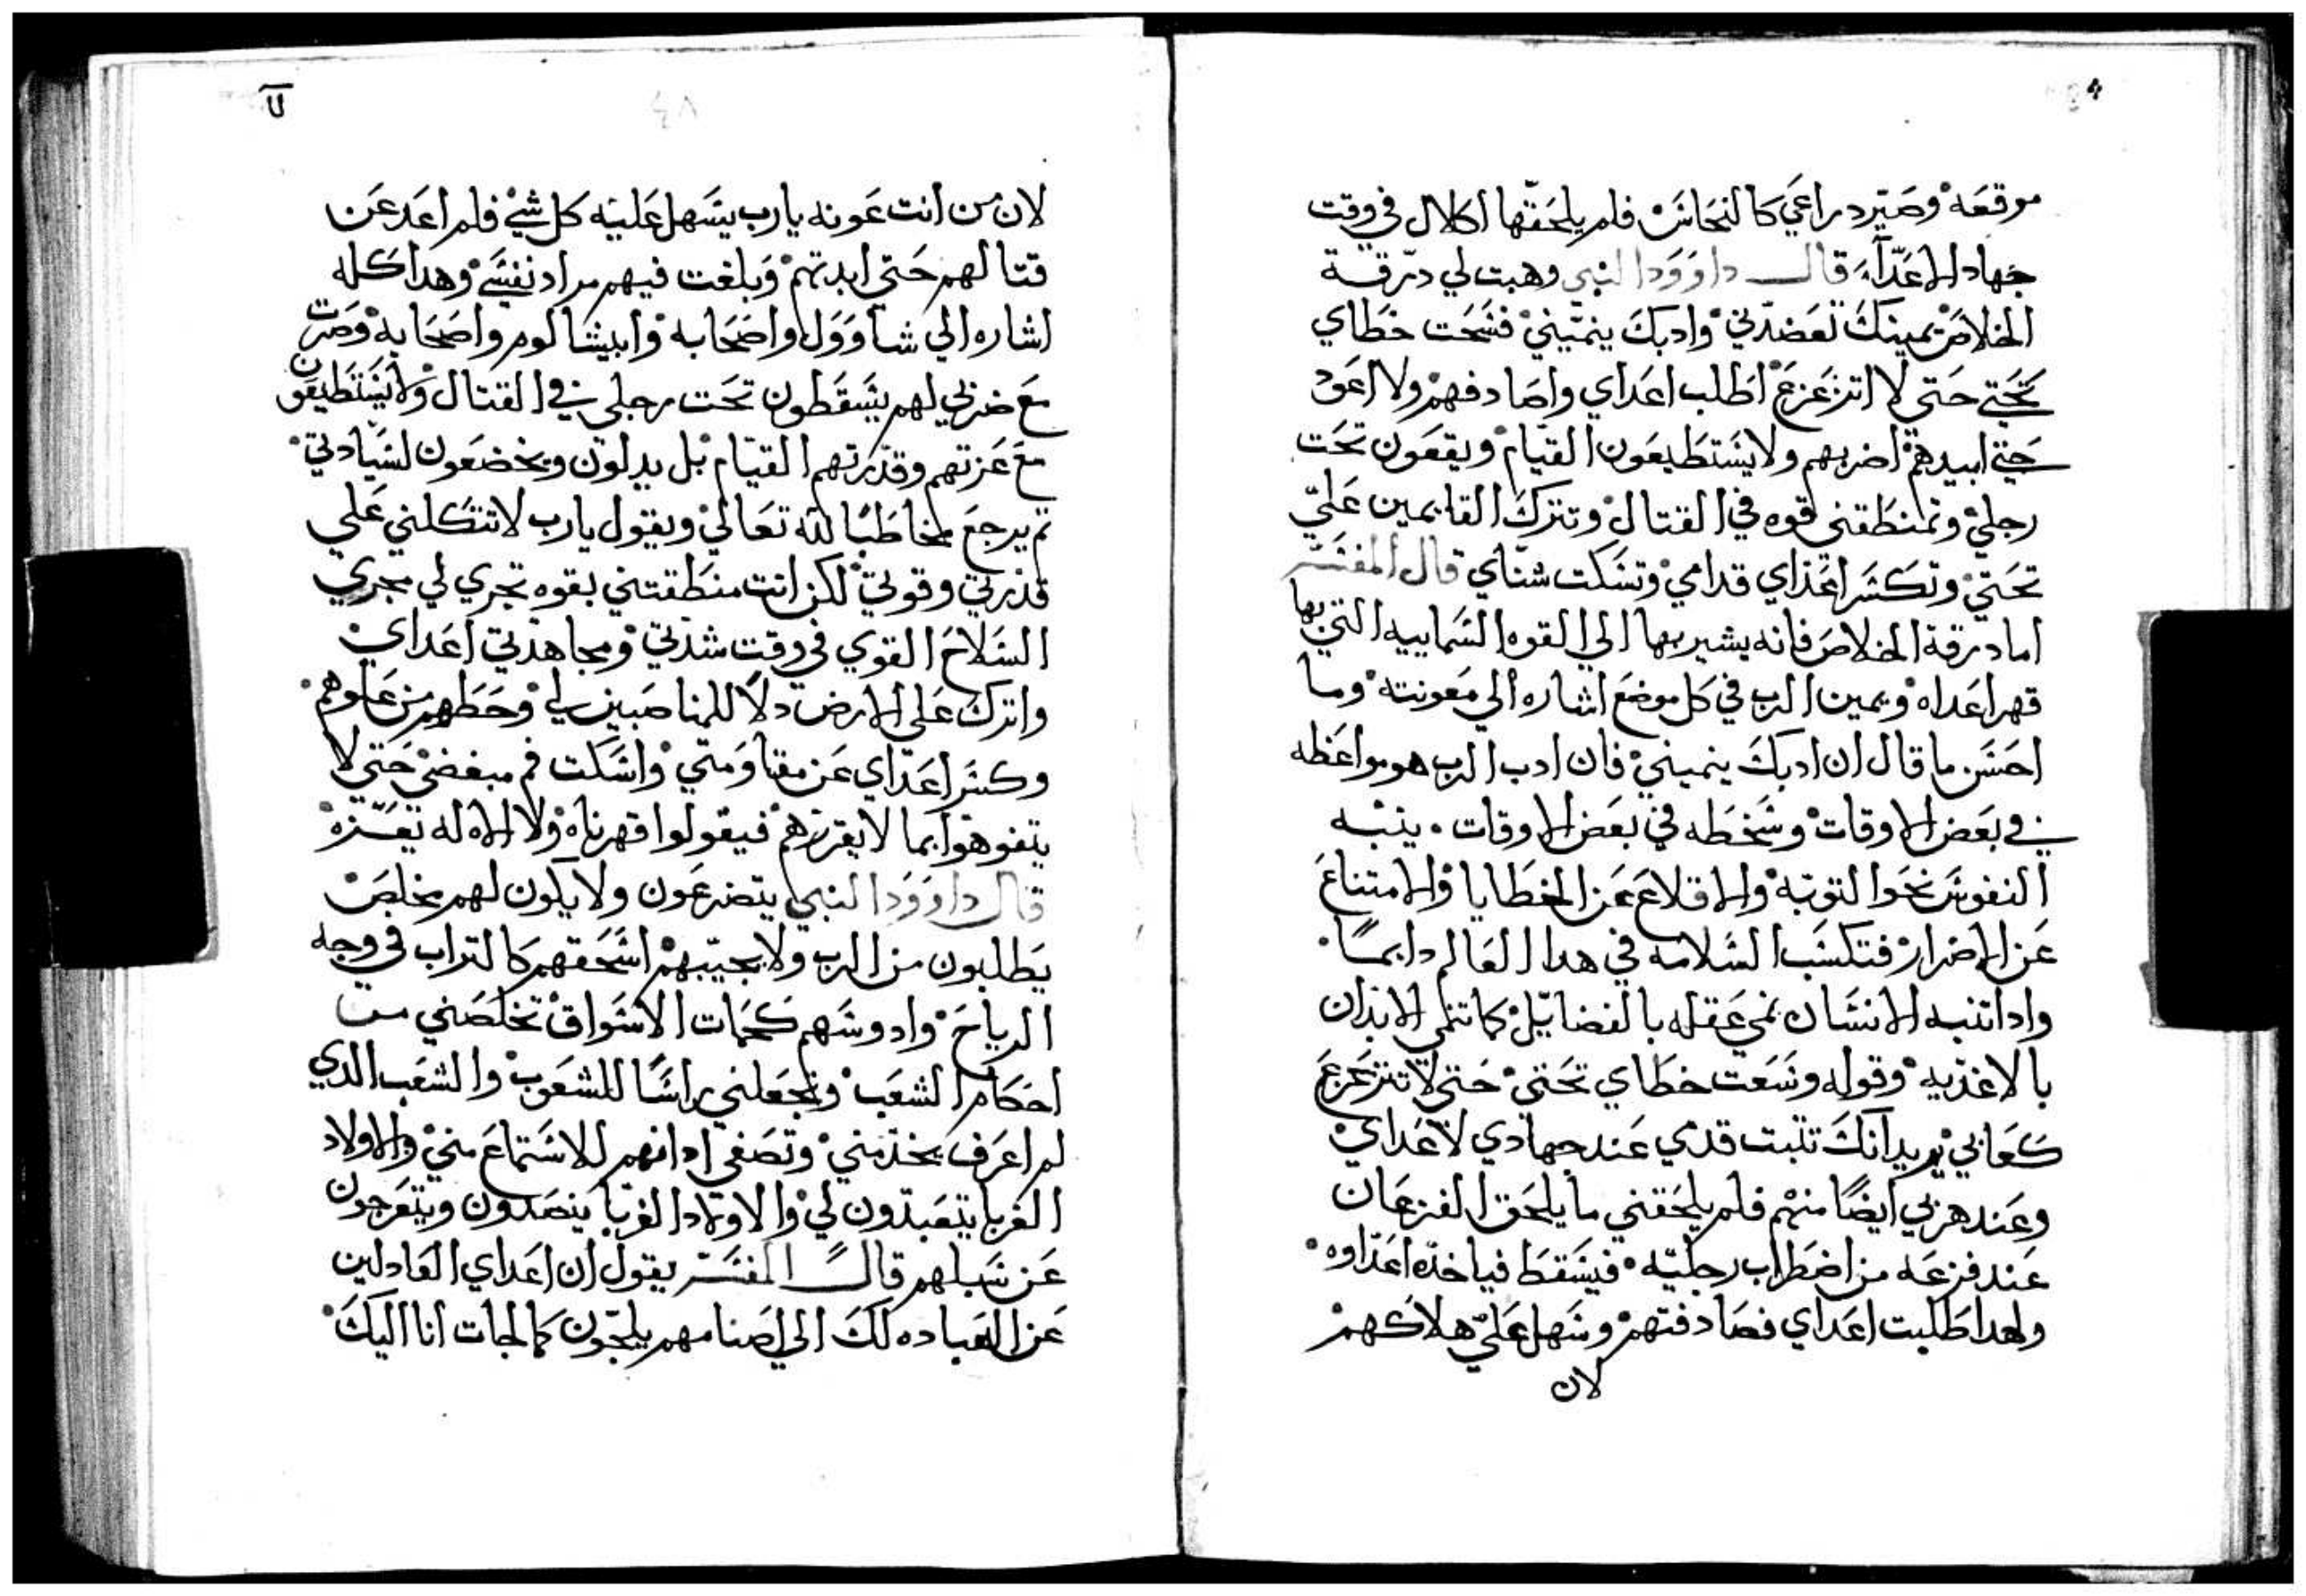 موقعه وصير دراعي كالنحاس فلم يلحقها اكلال في وقت
جهاد الاعدآء قال داوود النبي وهبت لي درقة
الخلاص يمينك تعضدني وادبك ينميني فسحت خطاي
تحتي حتي لا اتزعزع اطلب اعداي واصادفهم ولا اعود
حتي ابيدهم اضربهم ولا يستطيعون القيام ويقعون تحت
رجلي وتمنطقني قوه في القتال وتترك القايمين عليّ
تحتي وتكسر اعداي قدامي وتسكت شناي قال المفسر
اما درقة الخلاص فانه يشير بها الي القوه السماييه التي بها
قهر اعداه ويمين الرب في كل موضع اشاره الي معونته وما
احسن ما قال ان ادبك ينميني فان ادب الرب هو مواعظه
في بعض الاوقات وسخطه في بعض الاوقات ينبه
النفوس نحو التوبه والاقلاع عن الخطايا والامتناع
عن الاضرار فتكسب السلامه في هدا العالم دايمًا
وادا تنبه الانسان نمي عقله بالفضايل كما تنمي الابدان
بالاغديه وقوله وسعت خطاي تحتي حتي لا تتزعزع
كعابي يريد انك تثبت قدمي عند جهادي لاعداي
وعند هربي ايضًا منهم فلم يلحقني ما يلحق الفزعان
عند فزعه من اضطراب رجليه فيسقط فياخده اعداوه
ولهدا طلبت اعداي فصادفتهم وسهل عليّ هلاكهم
لان
لان من انت عونه يارب يسهل عليه كل شي فلم اعد عن
قتالهم حتي ابدتهم وبلغت فيهم مراد نفسي وهدا كله
اشاره الي شاوول واصحابه وابيشالوم واصحابه وصرت
مع ضربي لهم يسقطون تحت رجلي في القتال ولا يستطيعون
مع عزتهم وقدرتهم القيام بل يدلون ويخضعون لسيادتي
تم يرجع مخاطبًا لله تعالي ويقول يارب لا تتكلني علي
قدرتي وقوتي لكن انت منطقتني بقوه تجري لي مجري
السلاح القوي في وقت شدتي ومجاهدتي اعداي
واترك علي الارض دلا للمناصبين لي وحطهم من علوهم
وكسر اعداي عن مقاومتي واسكت فم مبغضي حتي لا
يتفوهوا بما لا يقررهم فيقولوا قهرناه ولا الاه له
قال داوود النبي يتضرعون ولا يكون لهم مخلص
يطلبون من الرب ولا يجيبهم اسحقهم كالتراب في وجه
الرياح وادوسهم كحمات الاسواق تخلصني من
احكام الشعب وتجعلني راسًا للشعوب والشعب الدي
لم اعرف يخدمني وتصغي ادانهم للاستماع مني والاولاد
الغربا يتعبدون لي والاولاد الغربا ينصدون ويتعرجون
عن سبلهم قال المفسر يقول ان اعداي العادلين
عن العباده لك الي اصنامهم يلجون كما لجات انا اليك